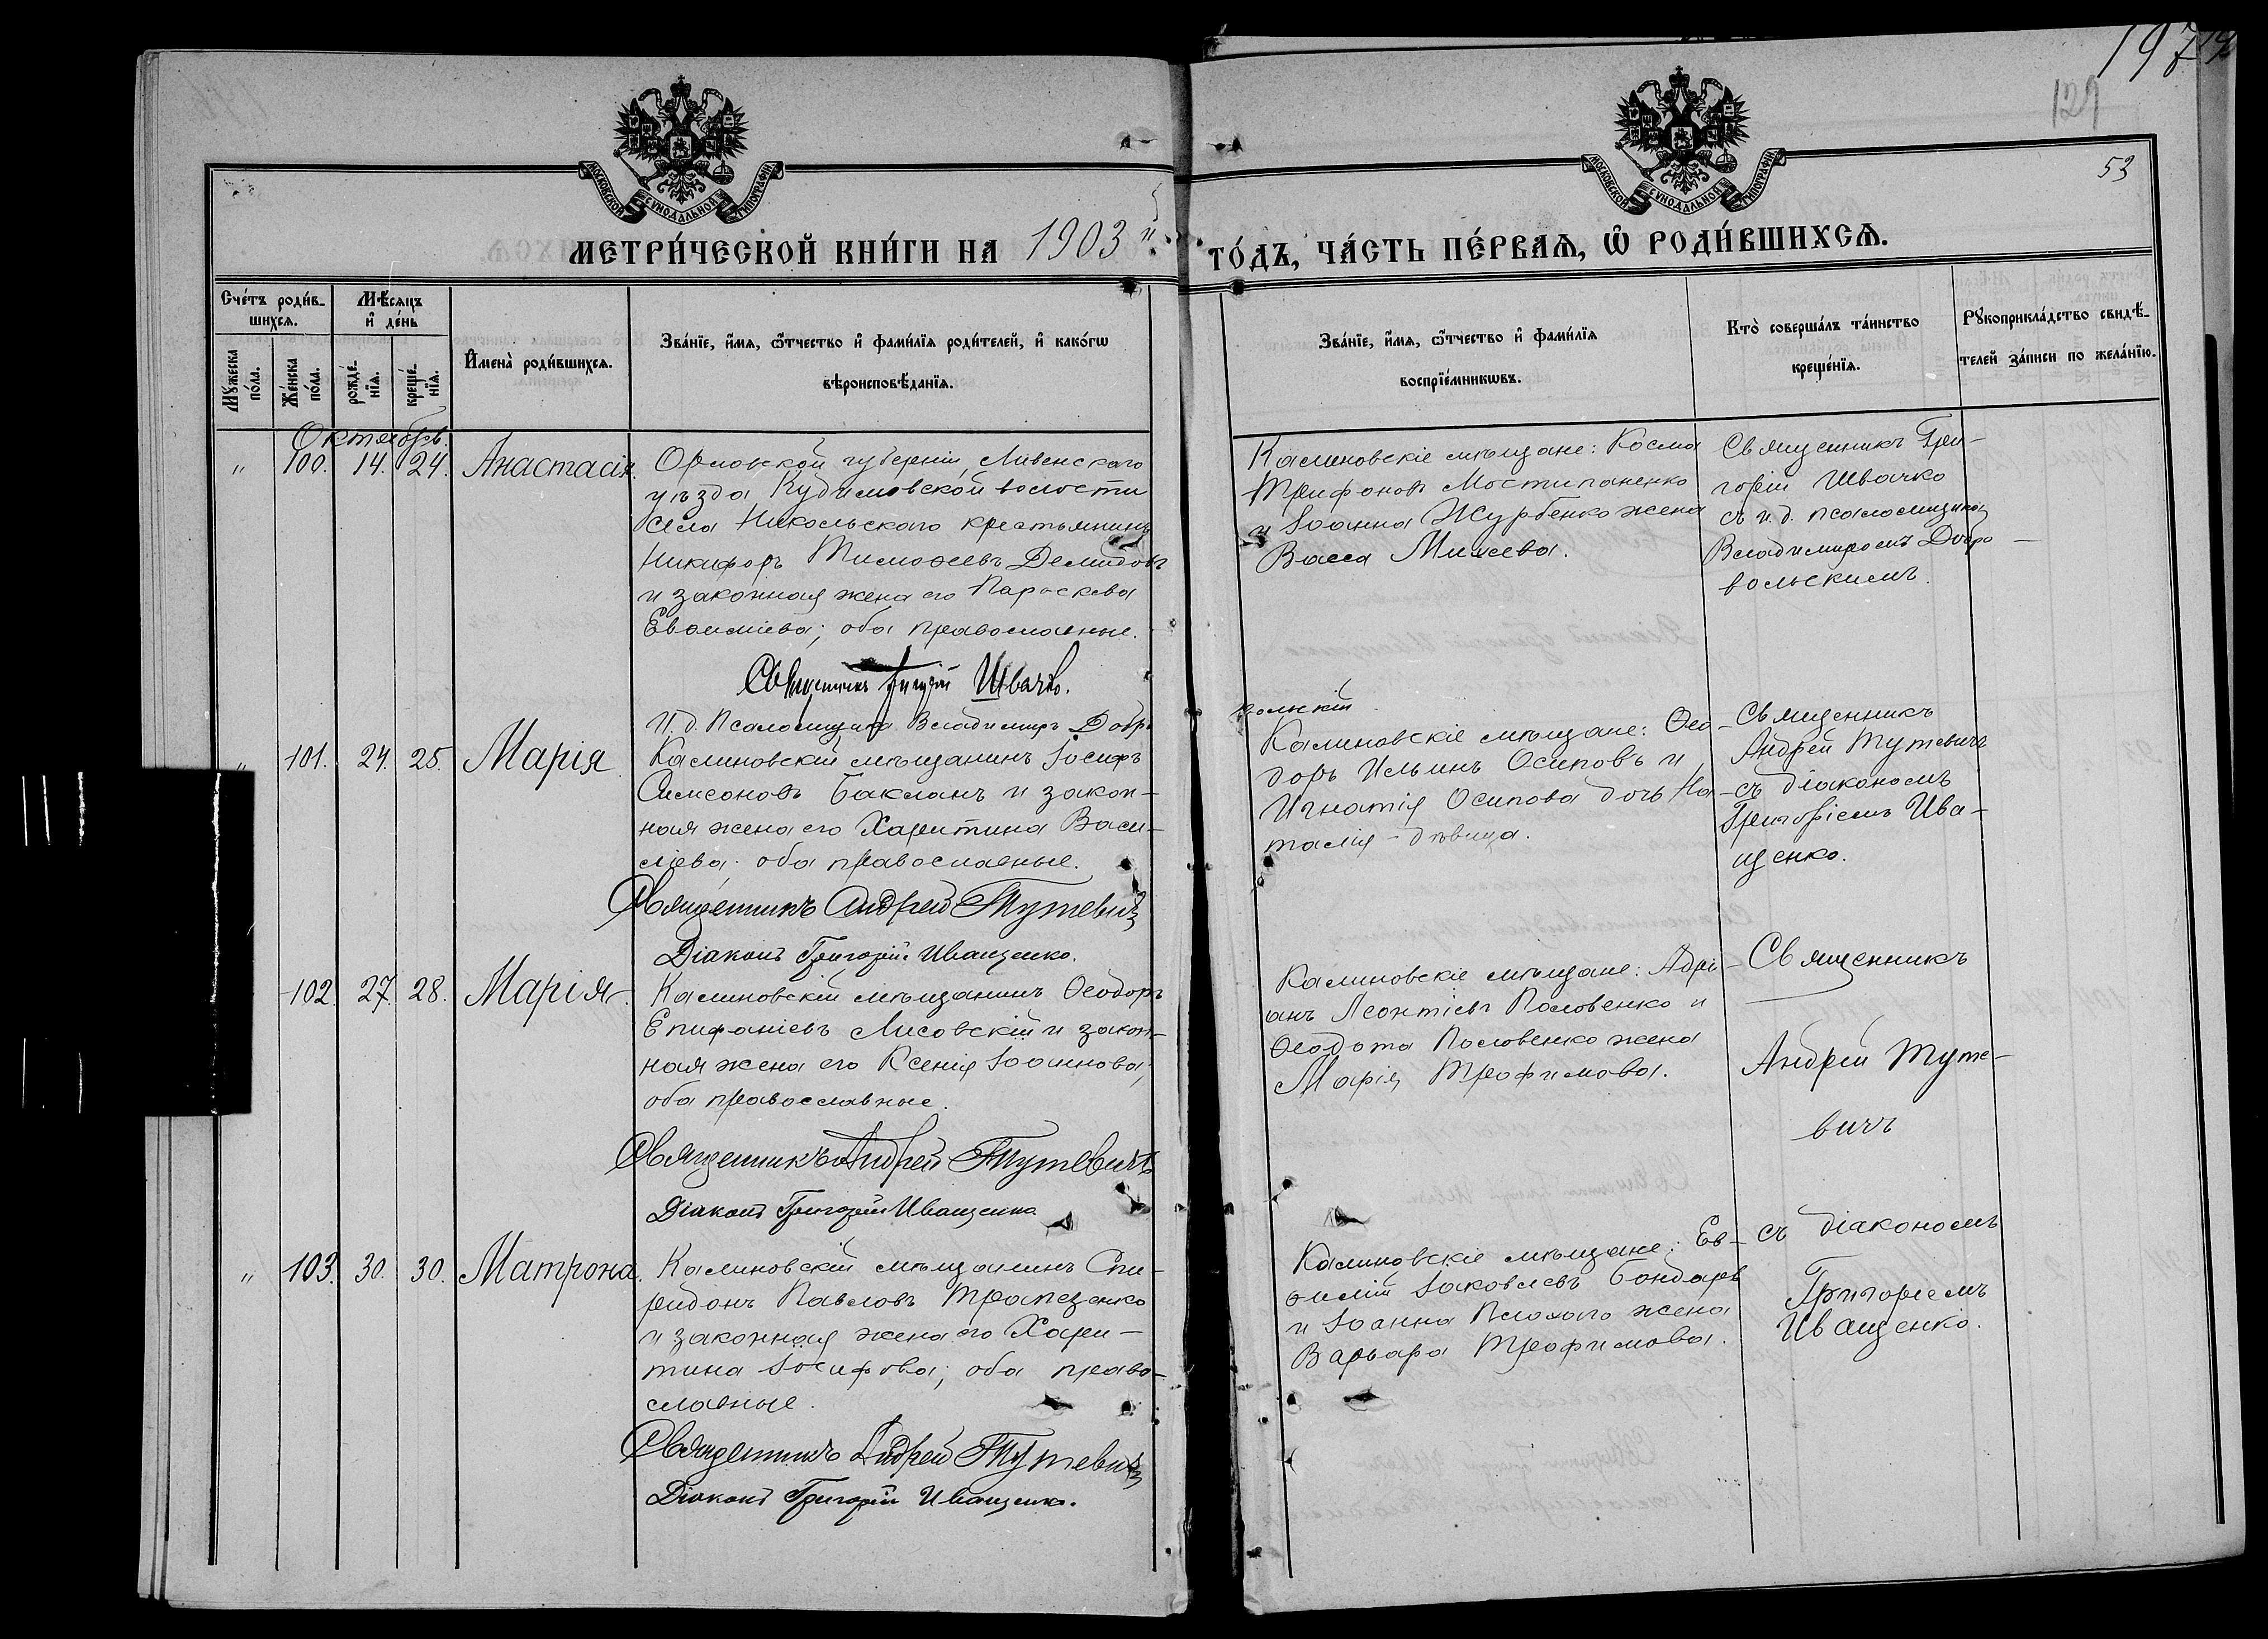 197
129
53
МОСКОВСКОЙ СѴНОДАЛЬНОЙ ТИПОГРАФІИ
МОСКОВСКОЙ СѴНОДАЛЬНОЙ ТИПОГРАФІИ
МЕТРИ́ЧЕСКОЙ КНИ́ГИ НА 1903
ГО́ДЪ, ЧА́СТЬ ПЕ́РВАѦ, Ѽ РОДИ́ВШИХСѦ.
Сче́тъ роди́в-
шихсѧ.
Мꙋ́жеска по́ла.
Же́нска по́ла.
Мѣ́сѧцъ
и҆ де́нь
рожде́-
нїѧ.
креще́-
нїѧ.
И҆мена̀ роди́вшихсѧ.
Зва́нїе, и҆́мѧ, ѻ҆́тчество и҆ фами́лїѧ роди́телей, и҆ како́гѡ
вѣроисповѣ́данїѧ.
Зва́нїе, и҆́мѧ, ѻ҆́тчество и҆ фами́лїѧ
воспрїе́мникѡвъ.
Кто̀ соверша́лъ та́инство
креще́нїѧ.
Рꙋкоприкла́дство свидѣ́-
телей за́писи по жела́нїю.
Октябрь.
" 100. 14. 24. Анастасія.
Орловской губерніи, Ливенскаго
уѣзда, Кудиновской волости
села Никольскаго крестьянинъ
Никифоръ Тимоѳеевъ Демидовъ
и законная жена его Параскева
Евѳиміева; оба православные.
Священникъ Григорій Швачко.
И. д. Псаломщика Владимиръ Добро
вольскій.
Калиновскіе мѣщане: Косма
Трифоновъ Мостипаненко
и Іоанна Журбенко жена
Васса Михеева.
Священникъ Гри-
горій Швачко
съ и. д. псаломщика
Владимиромъ Добро-
вольскимъ.
" 101. 24. 25. Марія.
Калиновскій мѣщанинъ Іосифъ
Симеоновъ Бакланъ и закон-
ная жена его Харитина Васи-
ліева; оба православные.
Священникъ Андрей Тутевичъ
Діаконъ Григорій Иващенко.
Калиновскіе мѣщане: Ѳео-
доръ Ильинъ Осиповъ и
Игнатія Осипова дочь На-
талія - дѣвица.
Священникъ
Андрей Тутевичъ
съ діакономъ
Григоріемъ Ива-
щенко.
102. 27. 28. Марія.
Калиновскій мѣщанинъ Ѳеодоръ
Епифаніевъ Лисовскій и закон-
ная жена его Ксенія Іоаннова;
оба православные.
Священникъ Андрей Тутевичъ
Діаконъ Григорій Иващенко
Калиновскіе мѣщане: Адрі-
анъ Леонтіевъ Половенко и
Ѳеодота Половенко жена
Марія Трофимова.
Священникъ
Андрей Туте-
вичъ
" 103. 30. 30. Матрона.
Калиновскій мѣщанинъ Спи-
ридонъ Павловъ Трапезенко
и законная жена его Хари-
тина Іосифова; оба право-
славные.
Священникъ Андрей Тутевичъ
Діаконъ Григорій Иващенко.
Калиновскіе мѣщане: Ев-
ѳимій Іаковлевъ Бондарь
и Іоанна Плохого жена
Варвара Трофимова.
съ діакономъ
Григоріемъ
Иващенко.